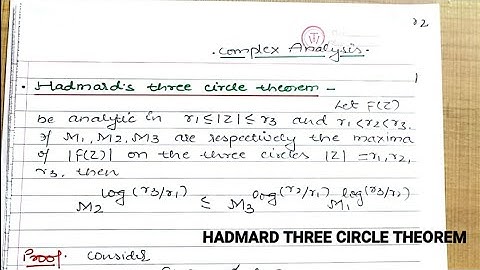 22
Complex Analysis.
1
• Hadmard's three circle theorem -
Let F(Z)
be analytic in r1≤|Z|≤r3 and r1<r2<r3.
If M1, M2, M3 are respectively the maxima
of |F(Z)| on the three circles |Z| =r1,r2,
r3, then
M2^log(r3/r1) ≤ M3^log(r2/r1) M1^log(r3/r2)
HADMARD THREE CIRCLE THEOREM
Proof. Consider